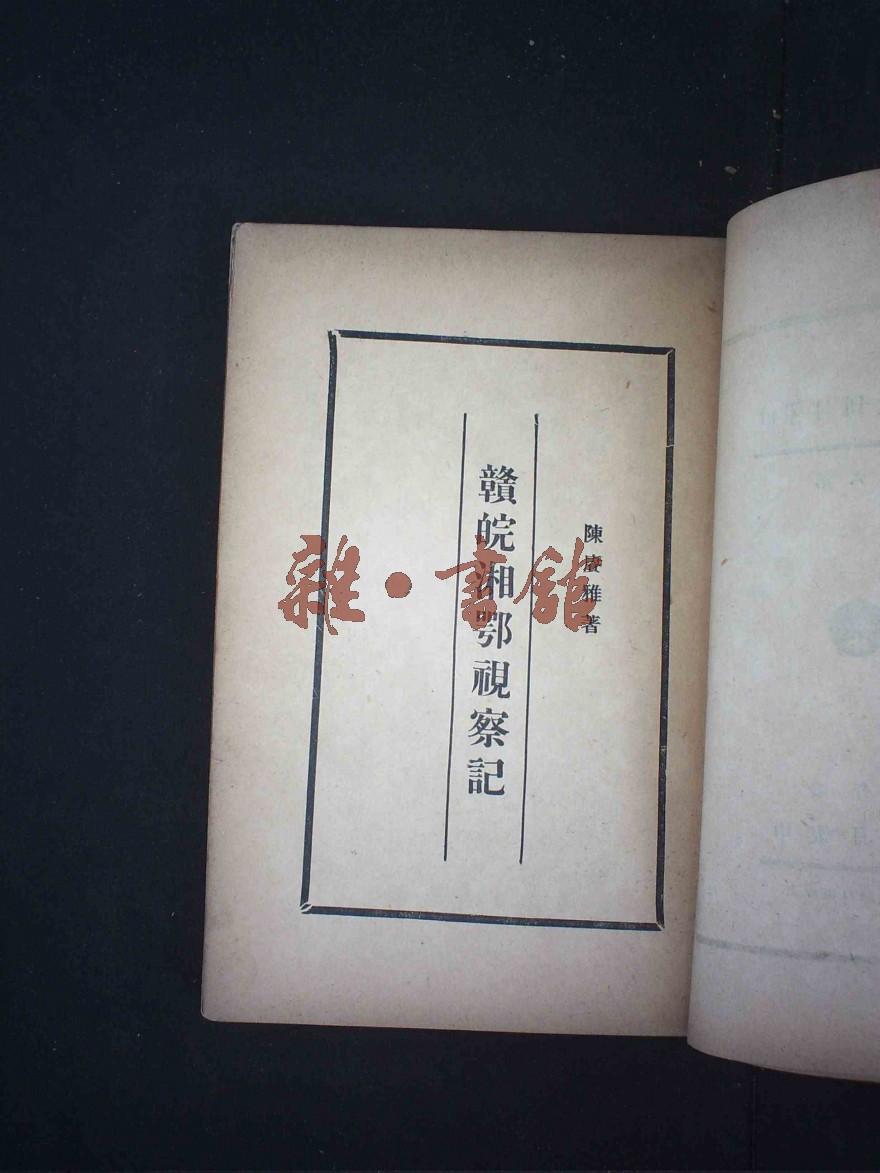 陳賡雅著
贛皖湘鄂視察記
雜·書館